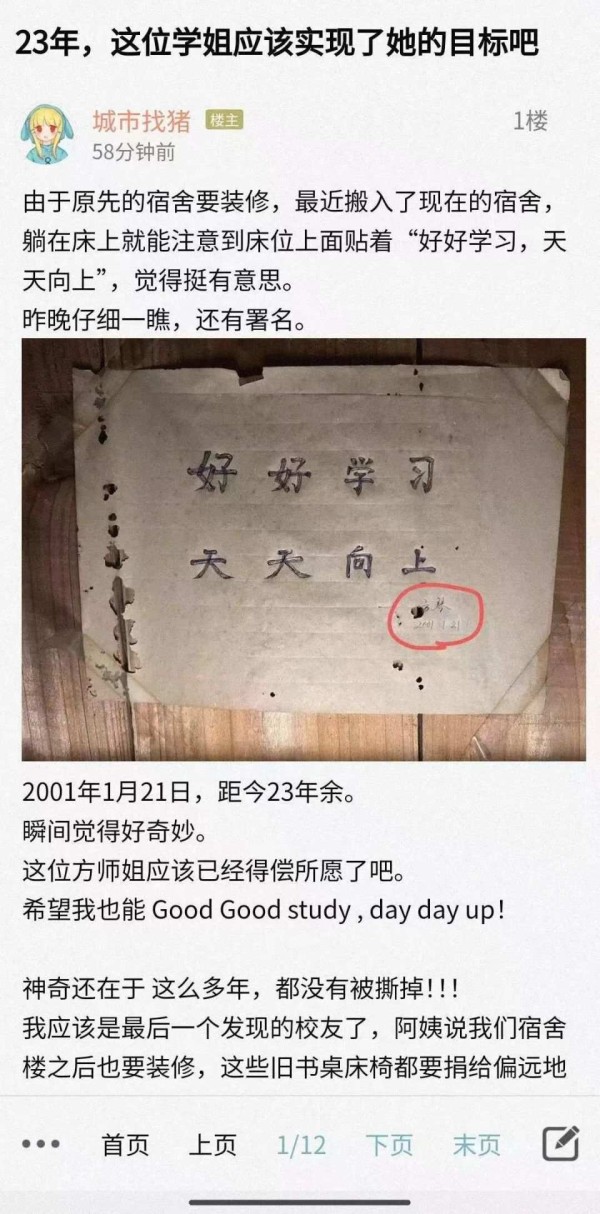 23年，这位学姐应该实现了她的目标吧
城市找猪 楼主 1楼
58分钟前
由于原先的宿舍要装修，最近搬入了现在的宿舍，
躺在床上就能注意到床位上面贴着“好好学习，天
天向上”，觉得挺有意思。
昨晚仔细一瞧，还有署名。
好好学习
天天向上
2001年1月21日，距今23年余。
瞬间觉得好奇妙。
这位方师姐应该已经得偿所愿了吧。
希望我也能 Good Good study , day day up！
神奇还在于 这么多年，都没有被撕掉！！！
我应该是最后一个发现的校友了，阿姨说我们宿舍
楼之后也要装修，这些旧书桌床椅都要捐给偏远地
首页 上页 1/12 下页 末页